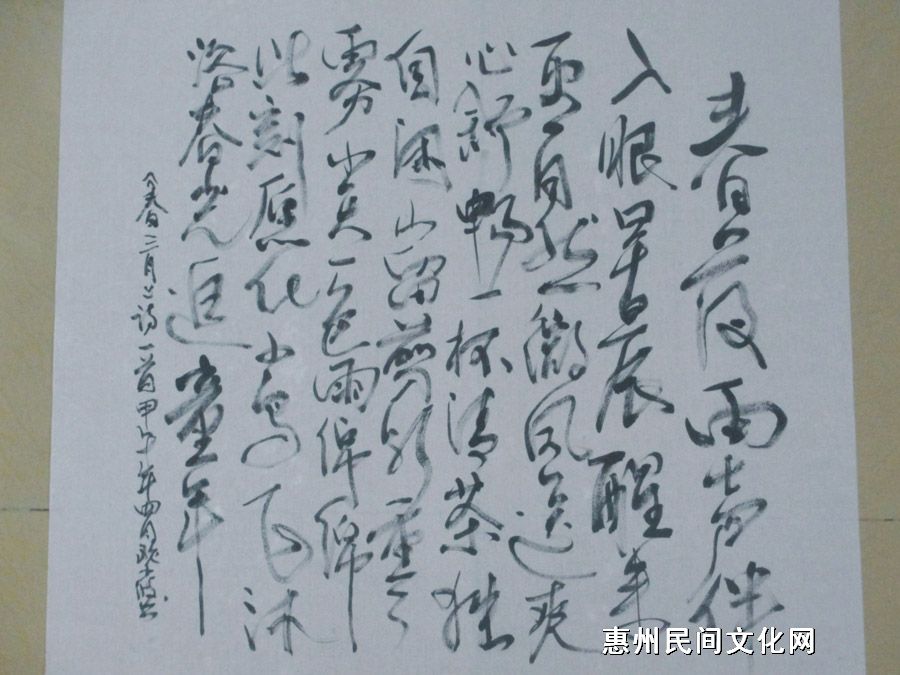 春日夜雨声伴
入眠早晨醒来
更自然微风送爽
心舒畅一杯清茶独
自闲山留剪影重云
雾一色雨绵绵
此刻愿化小鸟飞沐
浴春光追童年
诗一首甲午年四月
惠州民间文化网